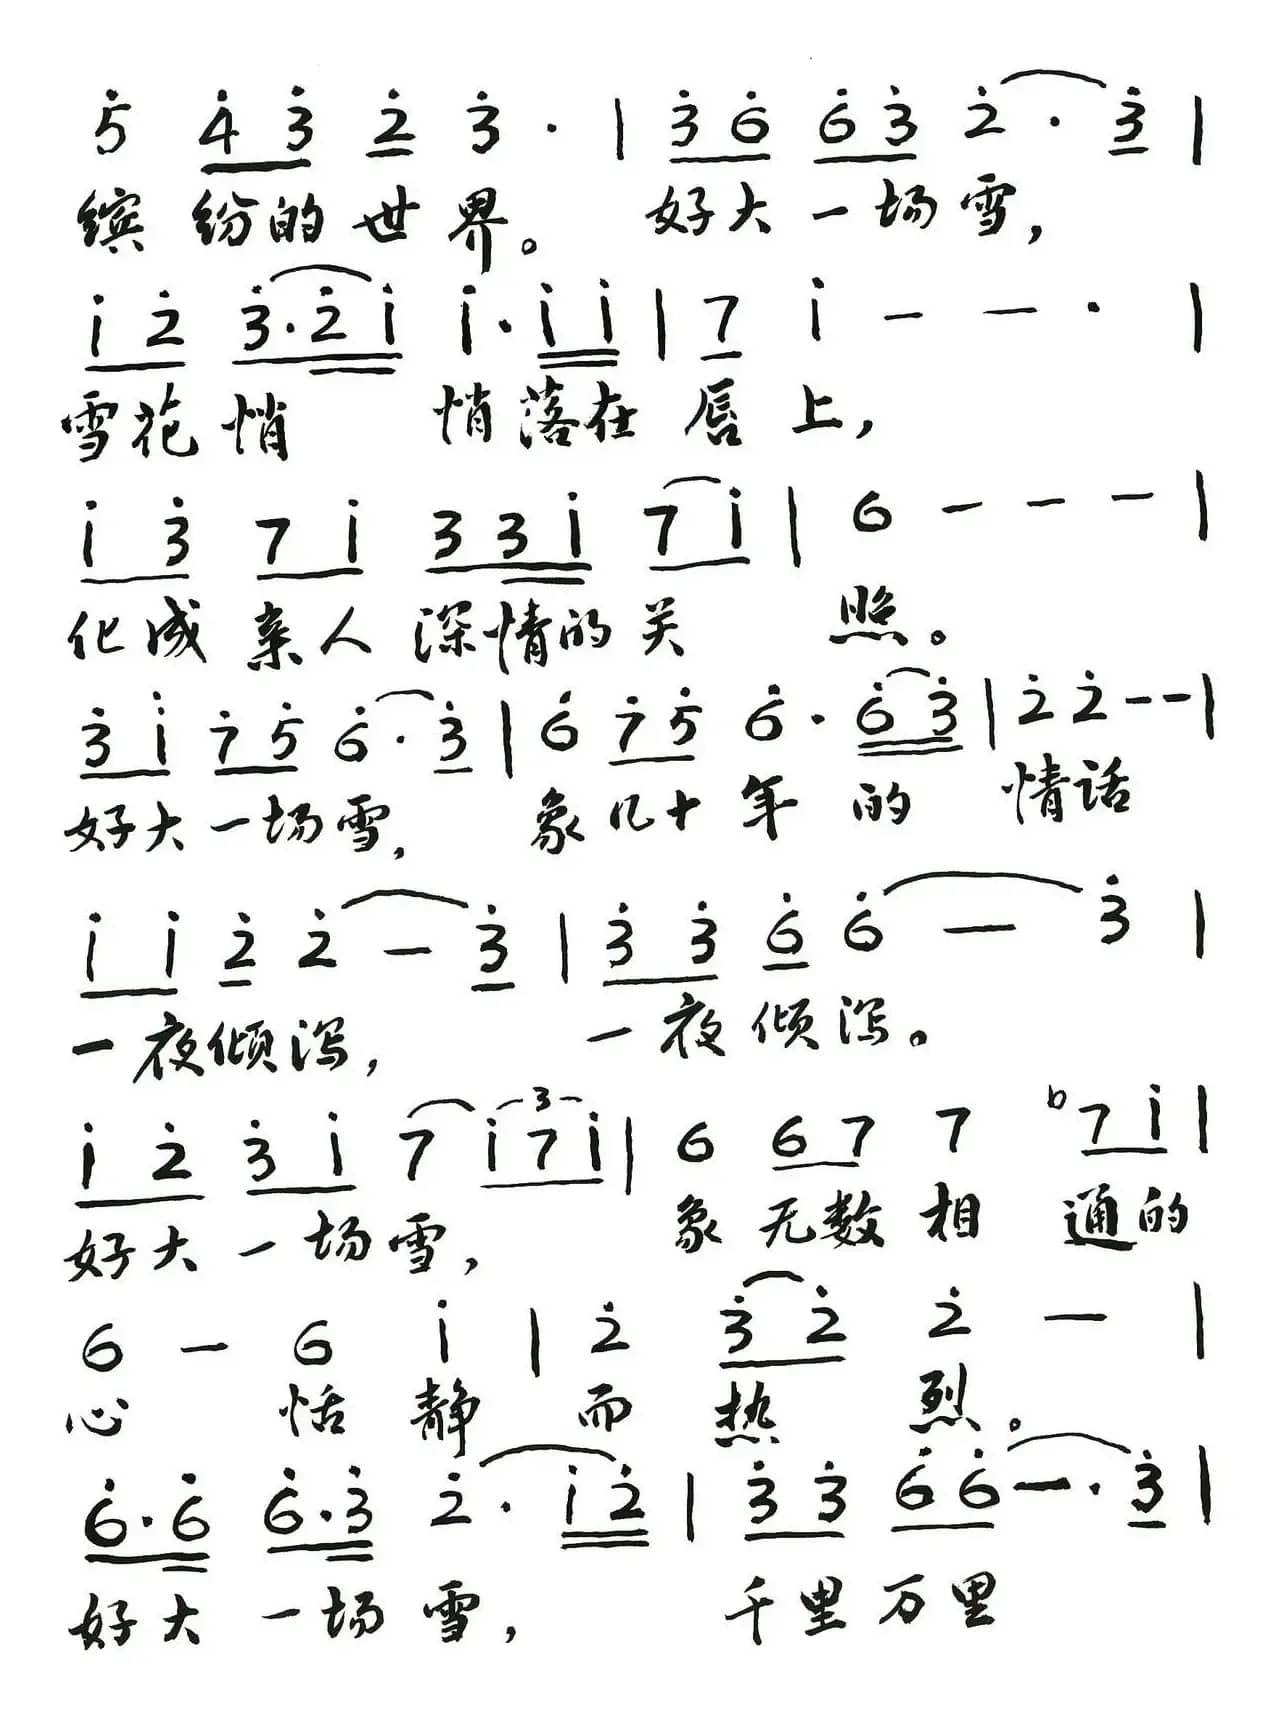 5̇ 4̇ 3̇ 2̇ 3̇ · | 3̇ 6̇ 6̇ 3̇ 2̇ · 3̇ |
缤 纷的 世 界。 好大一场雪，
1̇ 2̇ 3̇·2̇ 1̇ 1̇·1̇ 1̇ | 7 1̇ — — · |
雪花悄 悄落在唇上，
1̇ 3̇ 7 1̇ 3 3 1̇ 7 1̇ | 6 — — — |
化成亲人深情的关 照。
3̇ 1̇ 7̇ 5̇ 6̇ · 3̇ | 6̇ 7̇ 5̇ 6̇ · 6̇ 3̇ | 2̇ 2̇ — — |
好大一场雪， 象几十年 的 情话
1̇ 1̇ 2̇ 2̇ — 3̇ | 3̇ 3̇ 6̇ 6̇ — 3̇ |
一夜倾泻， 一夜倾泻。
3
1̇ 2̇ 3̇ 1̇ 7 1̇ 7 1̇ | 6 6 7 7 ♭7 1̇ |
好大一场雪， 象无数相 通的
6 — 6 1̇ | 2̇ 3̇ 2̇ 2̇ — |
心 恬静 而 热 烈。
6̇·6̇ 6̇·3̇ 2̇ · 1̇ 2̇ | 3̇ 3̇ 6̇ 6̇ — · 3̇ |
好大一场雪， 千里万里